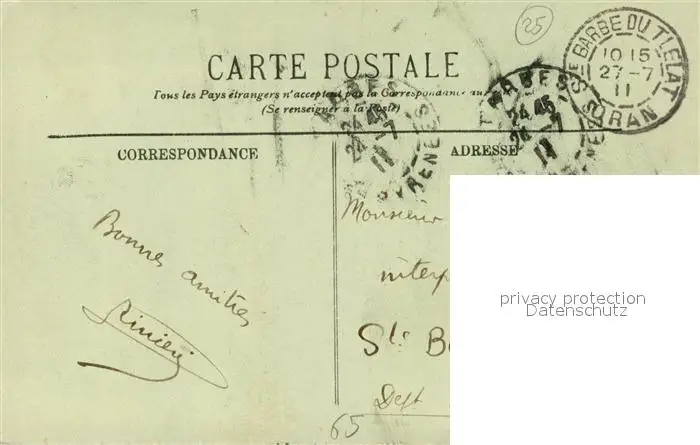 25
CARTE POSTALE
Tous les Pays étrangers n'acceptent pas la Correspondance au
(Se renseigner à la Poste)
STE BARBE DU TLELAT
10 15
27-7
11
ORAN
TARBES
24 45
24-7
11
TARBES
24 45
24-7
11
PYRENEES
CORRESPONDANCE
ADRESSE
Bonnes amitiés
Monsieur
interp
Ste Ba
Dept
65
privacy protection
Datenschutz